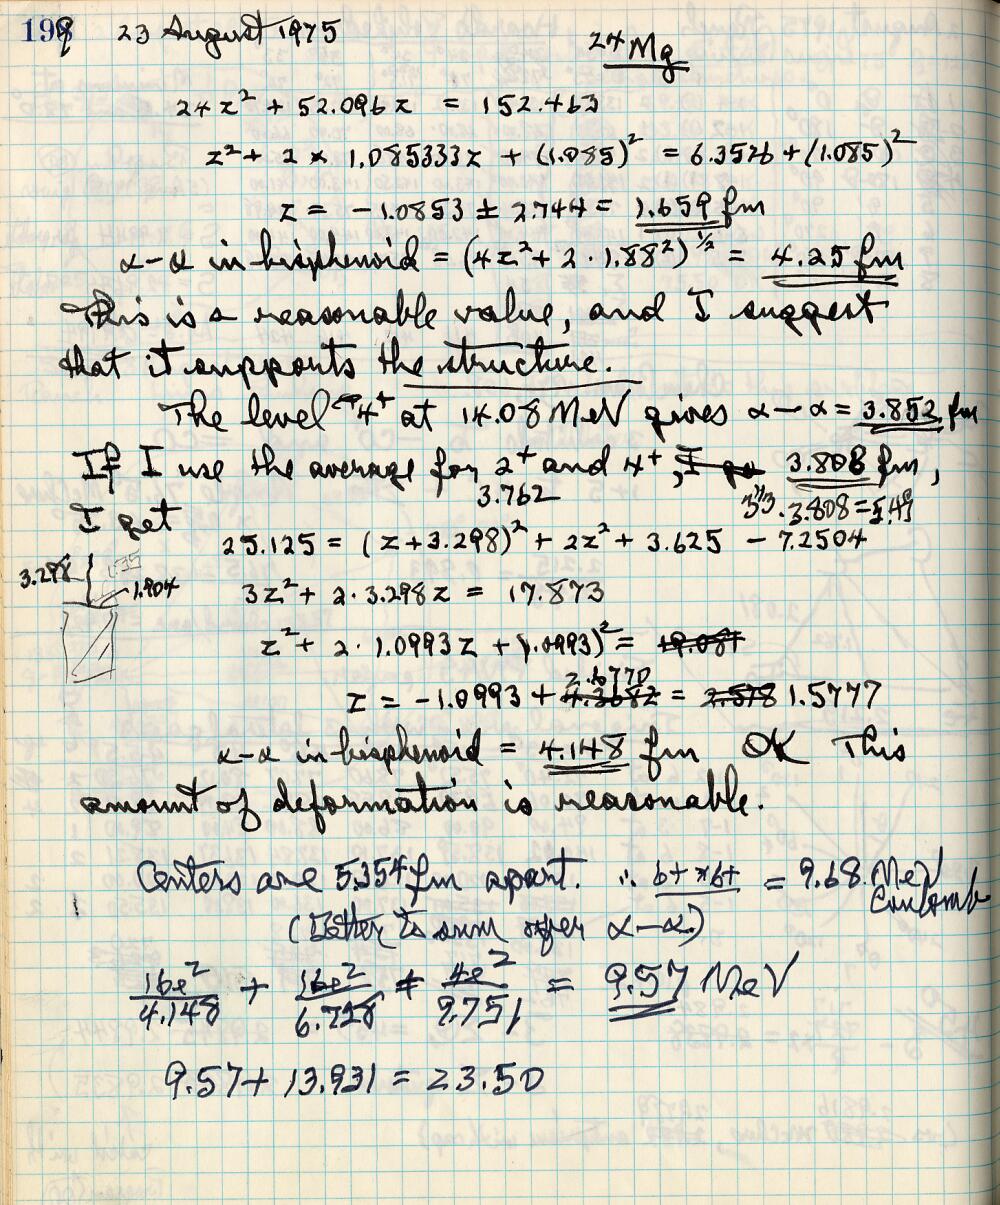 198 23 August 1975
24Mg
24z² + 52.096z = 152.463
z² + 2 × 1.085333z + (1.085)² = 6.3526 + (1.085)²
z = -1.0853 ± 2.744 = 1.659 fm
α-α in bisphenoid = (4z² + 2 · 1.88²)^1/2 = 4.25 fm
This is a reasonable value, and I suggest
that it supports the structure.
The level 4+ at 14.08 MeV gives α-α = 3.852 fm
If I use the average for 2+ and 4+, 3.808 fm,
3.762
3^1/3 · 3.808 = 5.49
I get
25.125 = (z + 3.298)² + 2z² + 3.625 - 7.2504
3.298 { 1.904
3z² + 2 · 3.298z = 17.873
z² + 2 · 1.0993z + (1.0993)² = 19.081
2.6770
z = -1.0993 + 4.3682 = 2.578 1.5777
α-α in bisphenoid = 4.148 fm OK This
amount of deformation is reasonable.
Centers are 5.354 fm apart. ∴ 6+ × 6+ = 9.68 MeV
Coulomb
(Better to sum over α-α.)
16e²/4.148 + 16e²/6.728 + 4e²/9.751 = 9.57 MeV
9.57 + 13.931 = 23.50